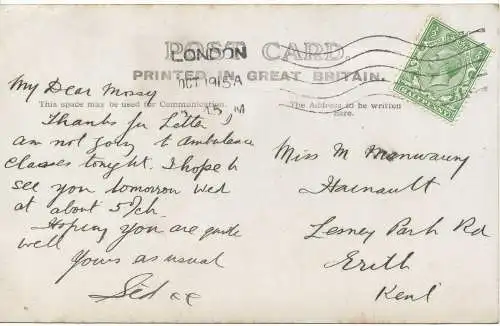 POST CARD.
LONDON
PRINTED IN GREAT BRITAIN.
OCT 1915
This space may be used for Communication.
The Address to be written
here.
HALFPENNY
My Dear Mossy
Thanks for Letter I
am not going to Ambulance
Classes tonight. I hope to
see you tomorrow Wed
at about 5
Hoping you are quite
well
Yours as usual
Sid xx
Miss M Manwaring
Hainault
Lesney Park Rd
Erith
Kent